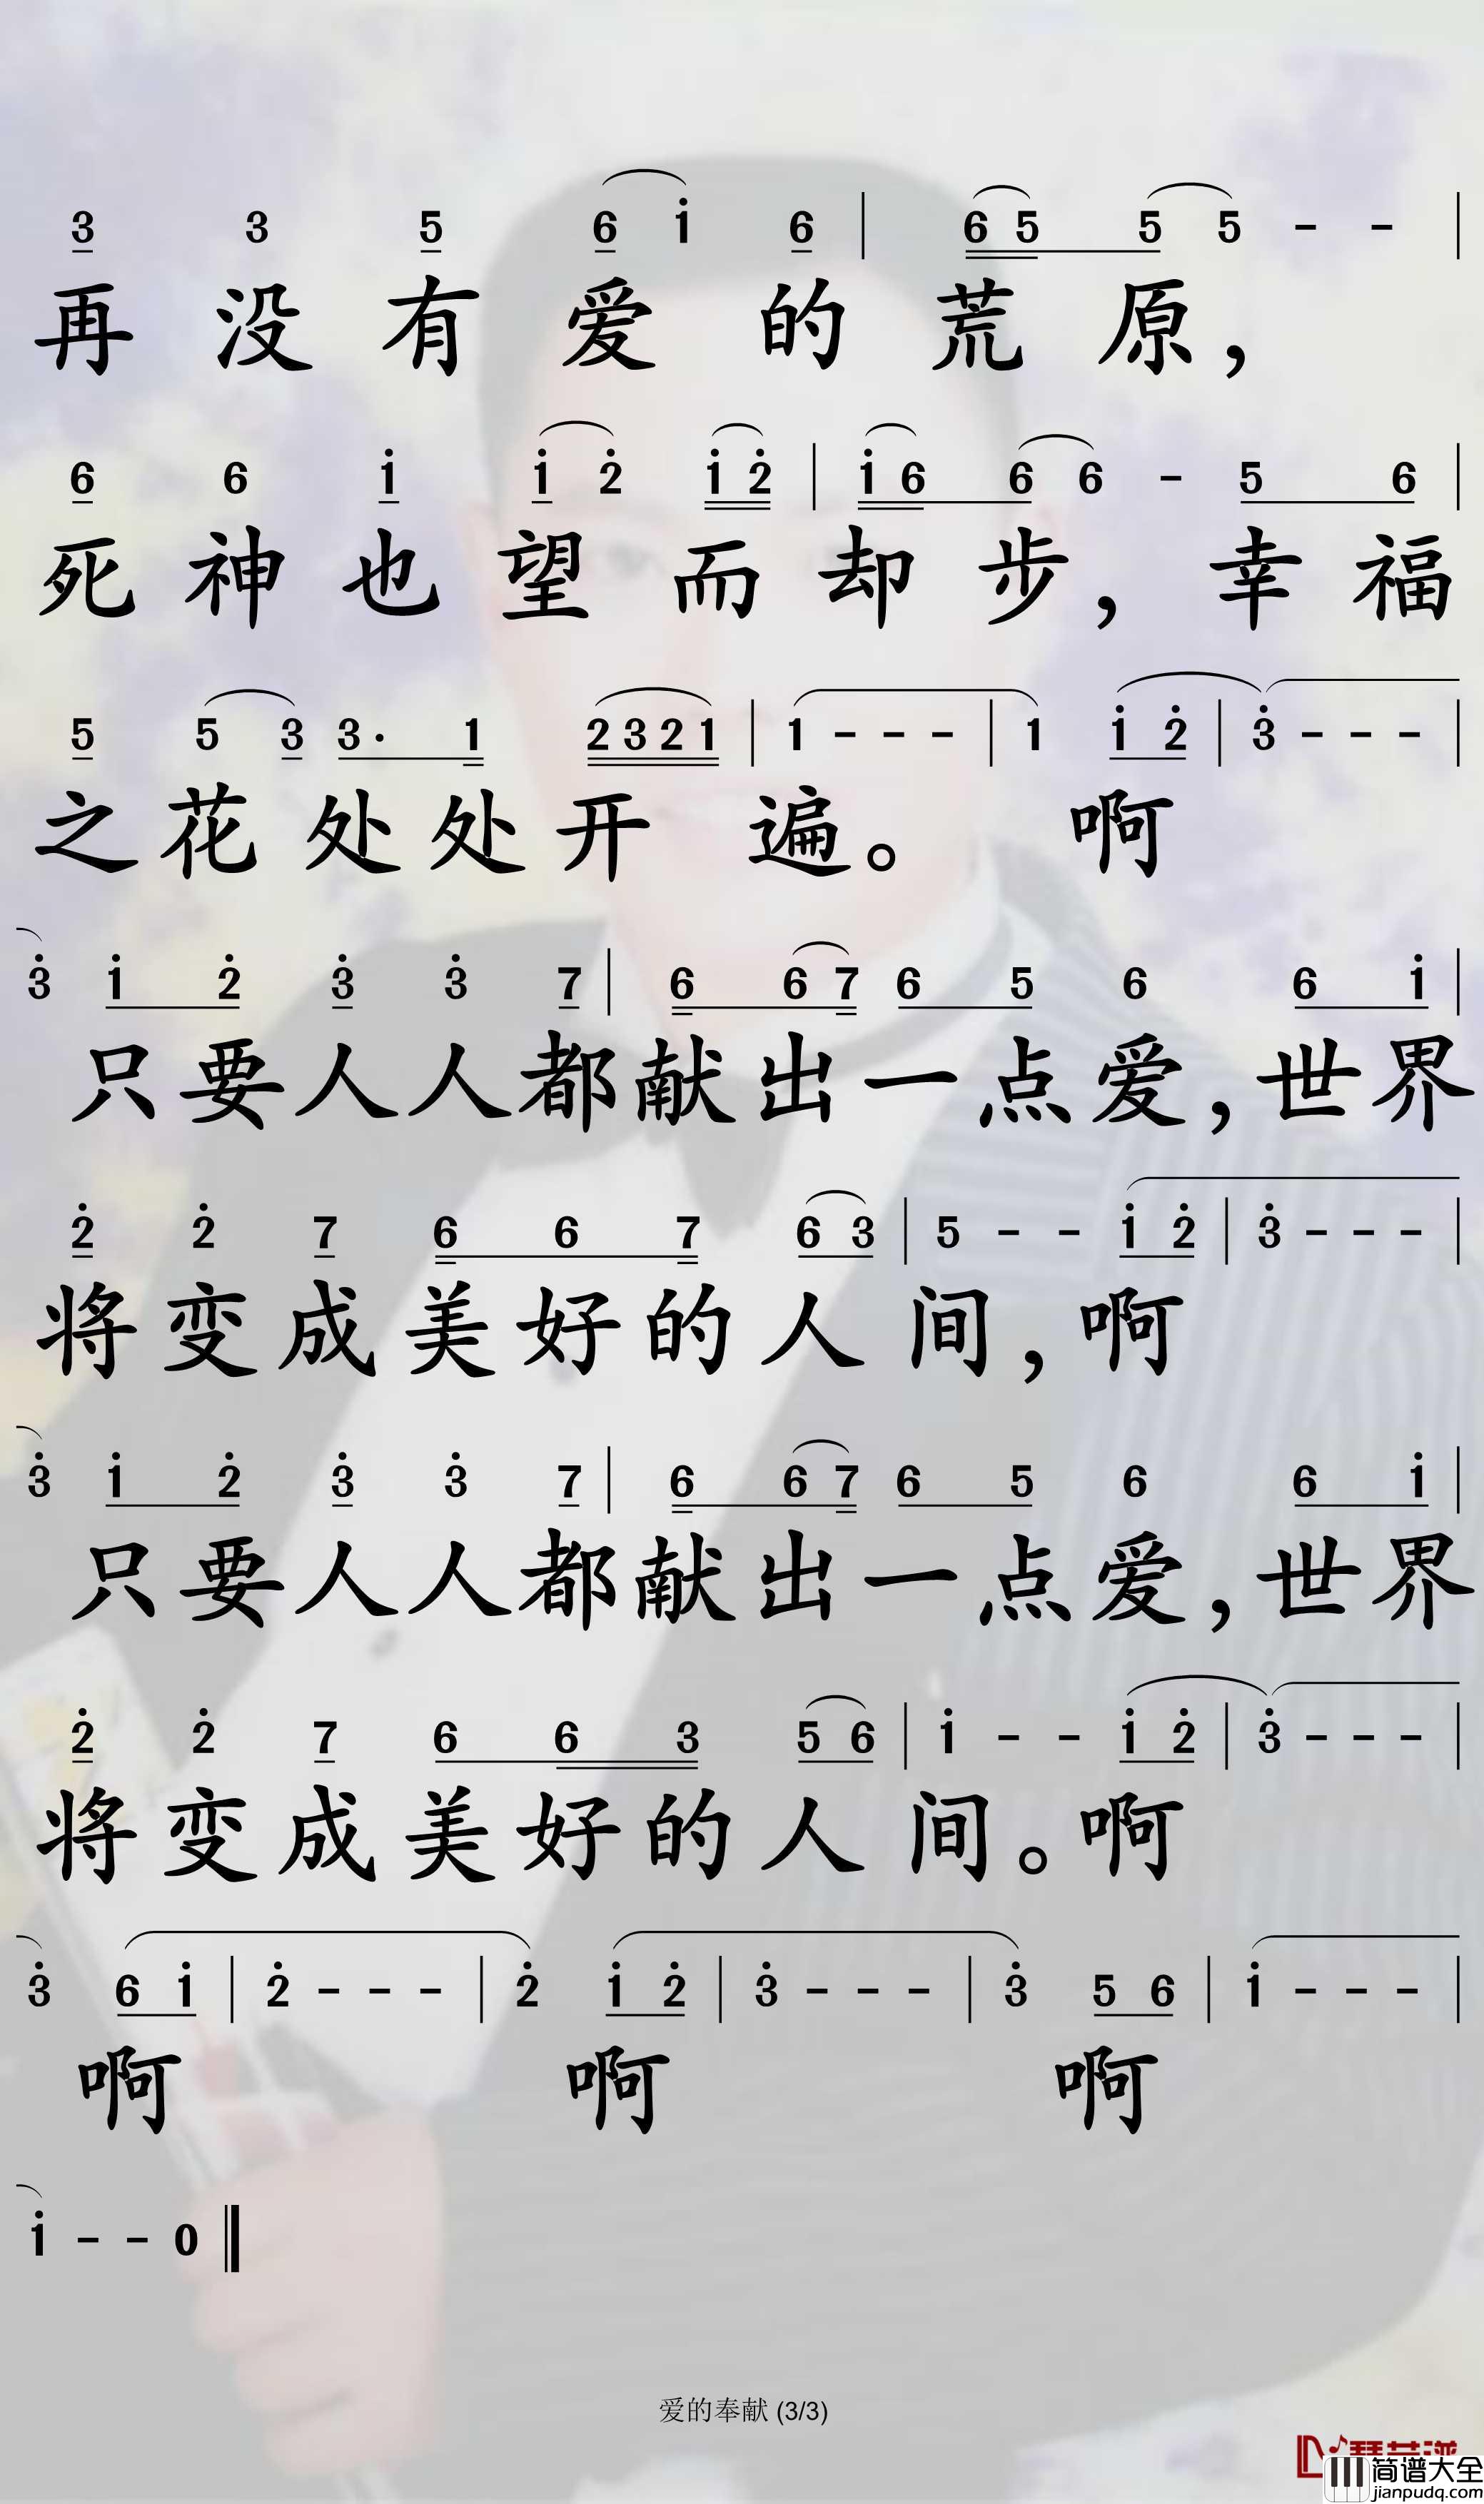 3 3 5 6 1 6 | 6 5 5 5 - - |
再没有爱的荒原，
6 6 1 1 2 1 2 | 1 6 6 6 - 5 6 |
死神也望而却步，幸福
5 5 3 3· 1 2 3 2 1 | 1 - - - | 1 1 2 | 3 - - - |
之花处处开遍。啊
3 1 2 3 3 7 | 6 6 7 6 5 6 6 1 |
只要人人都献出一点爱，世界
2 2 7 6 6 7 6 3 | 5 - - 1 2 | 3 - - - |
将变成美好的人间，啊
3 1 2 3 3 7 | 6 6 7 6 5 6 6 1 |
只要人人都献出一点爱，世界
2 2 7 6 6 3 5 6 | 1 - - 1 2 | 3 - - - |
将变成美好的人间。啊
3 6 1 | 2 - - - | 2 1 2 | 3 - - - | 3 5 6 | 1 - - - |
啊 啊 啊
1 - - 0
爱的奉献 (3/3)
简谱大全
jianpudq.com